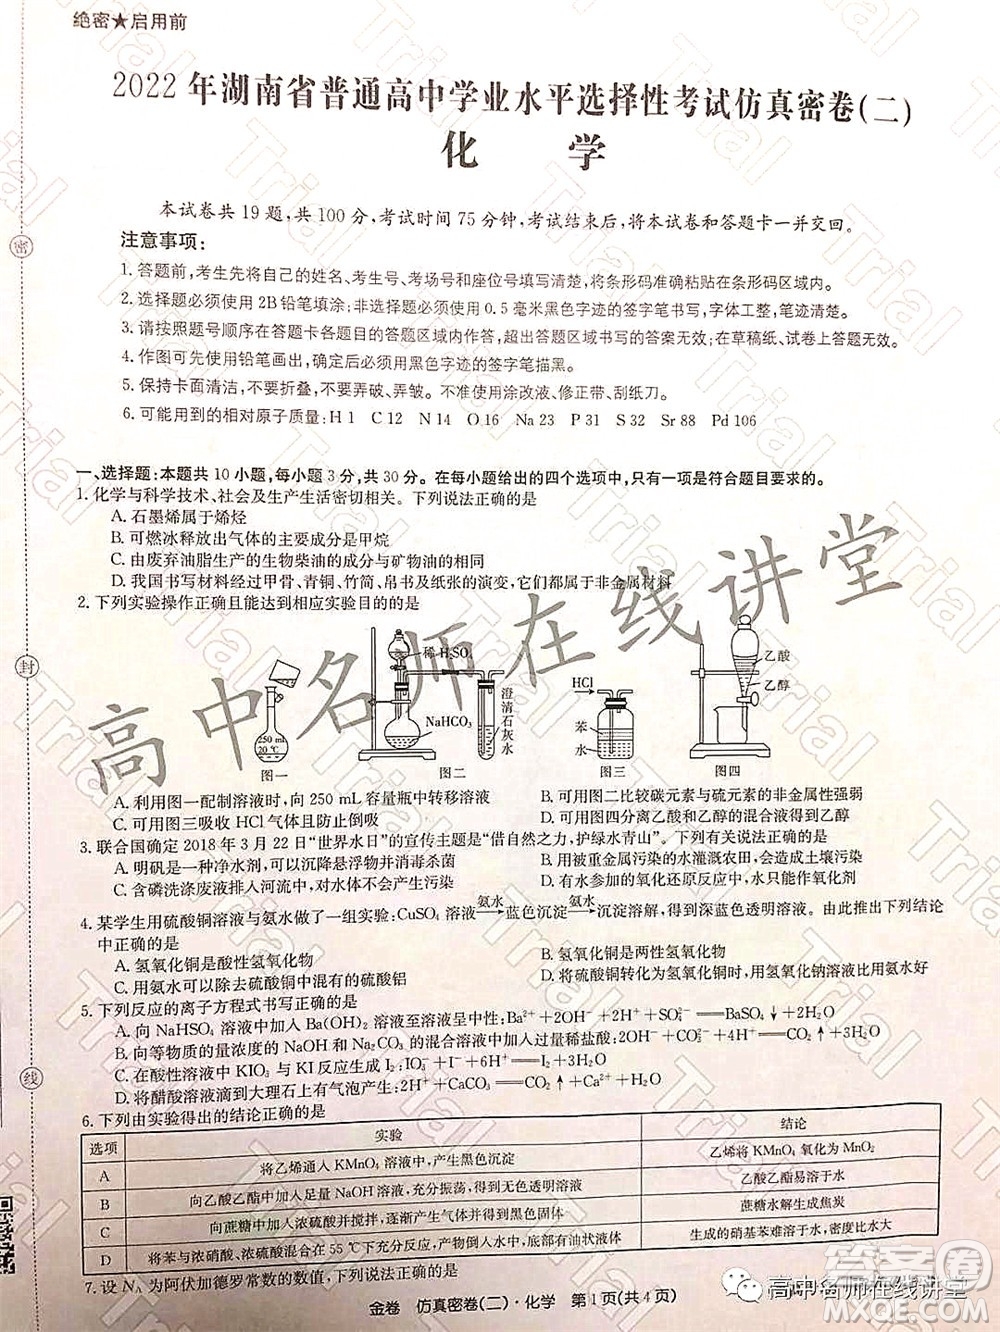 绝密★启用前
2022年湖南省普通高中学业水平选择性考试仿真密卷(二)
化 学
本试卷共19题,共100分,考试时间75分钟,考试结束后,将本试卷和答题卡一并交回。
注意事项:
1.答题前,考生先将自己的姓名、考生号、考场号和座位号填写清楚,将条形码准确粘贴在条形码区域内。
2.选择题必须使用2B铅笔填涂;非选择题必须使用0.5毫米黑色字迹的签字笔书写,字体工整,笔迹清楚。
3.请按照题号顺序在答题卡各题目的答题区域内作答,超出答题区域书写的答案无效;在草稿纸、试卷上答题无效。
4.作图可先使用铅笔画出,确定后必须用黑色字迹的签字笔描黑。
5.保持卡面清洁,不要折叠,不要弄破、弄皱。不准使用涂改液、修正带、刮纸刀。
6.可能用到的相对原子质量:H 1 C 12 N 14 O 16 Na 23 P 31 S 32 Sr 88 Pd 106
一、选择题:本题共10小题,每小题3分,共30分。在每小题给出的四个选项中,只有一项是符合题目要求的。
1.化学与科学技术、社会及生产生活密切相关。下列说法正确的是
A.石墨烯属于烯烃
B.可燃冰释放出气体的主要成分是甲烷
C.由废弃油脂生产的生物柴油的成分与矿物油的相同
D.我国书写材料经过甲骨、青铜、竹简、帛书及纸张的演变,它们都属于非金属材料
2.下列实验操作正确且能达到相应实验目的的是
250 mL
20 ℃
图一
稀H₂SO₄
NaHCO₃
澄清石灰水
图二
HCl
苯
水
图三
乙酸
乙醇
图四
A.利用图一配制溶液时,向250 mL容量瓶中转移溶液
B.可用图二比较碳元素与硫元素的非金属性强弱
C.可用图三吸收HCl气体且防止倒吸
D.可用图四分离乙酸和乙醇的混合溶液
3.联合国确定2018年3月22日“世界水日”的宣传主题是“借自然之力,护绿水青山”。下列有关说法正确的是
A.明矾是一种净水剂,可以沉降悬浮物和杀菌
B.可以使用被重金属污染的水灌溉农田
C.含磷洗涤废液随意排放,不会对水体产生污染
D.发生在自身的氧化还原反应中,水只能作氧化剂
4.某学生用硫酸铜溶液与氨水做了一组实验:CuSO₄溶液—氨水→蓝色沉淀—氨水→沉淀溶解,得到深蓝色透明溶液。由此推出下列结论
中正确的是
A.氢氧化铜是酸性氢氧化物
B.氢氧化铜是两性氢氧化物
C.用氨水可以除去硫酸铜中混有的硫酸铝
D.将硫酸铝溶液进行同样实验时,用氢氧化钠溶液代替氨水
5.下列反应的离子方程式书写正确的是
A.向NaHSO₄溶液中加入Ba(OH)₂溶液至溶液呈中性:Ba²⁺+2OH⁻+2H⁺+SO₄²⁻══BaSO₄↓+2H₂O
B.向等物质的量浓度的NaOH和Na₂CO₃的混合溶液中加入过量稀盐酸:OH⁻+CO₃²⁻+3H⁺══CO₂↑+2H₂O
C.酸性溶液中KIO₃与KI反应生成I₂:IO₃⁻+I⁻+6H⁺══I₂+3H₂O
D.将醋酸溶液滴到大理石上有气泡产生:CaCO₃+2H⁺══CO₂↑+Ca²⁺+H₂O
6.下列由实验得出的结论正确的是
选项 实验 结论
A 将乙烯通入KMnO₄溶液中,产生黑色沉淀 乙烯将KMnO₄氧化为MnO₂
B 向乙酸乙酯中加入足量NaOH溶液,充分振荡,得到无色透明溶液 乙酸乙酯易溶于水
C 向蔗糖中加入浓硫酸并搅拌,逐渐产生气体并得到黑色固体 蔗糖水解生成焦炭
D 将苯与浓硝酸、浓硫酸混合在55 ℃下充分反应,产生有油状液体 生成的硝基苯难溶于水,密度比水大
7.设Nₐ为阿伏加德罗常数的数值,下列说法正确的是
金卷 仿真密卷(二)·化学 第1页(共4页)
密
封
线
高中名师在线讲堂
高中名师在线讲堂
答案圈
MXQE.COM
Trial